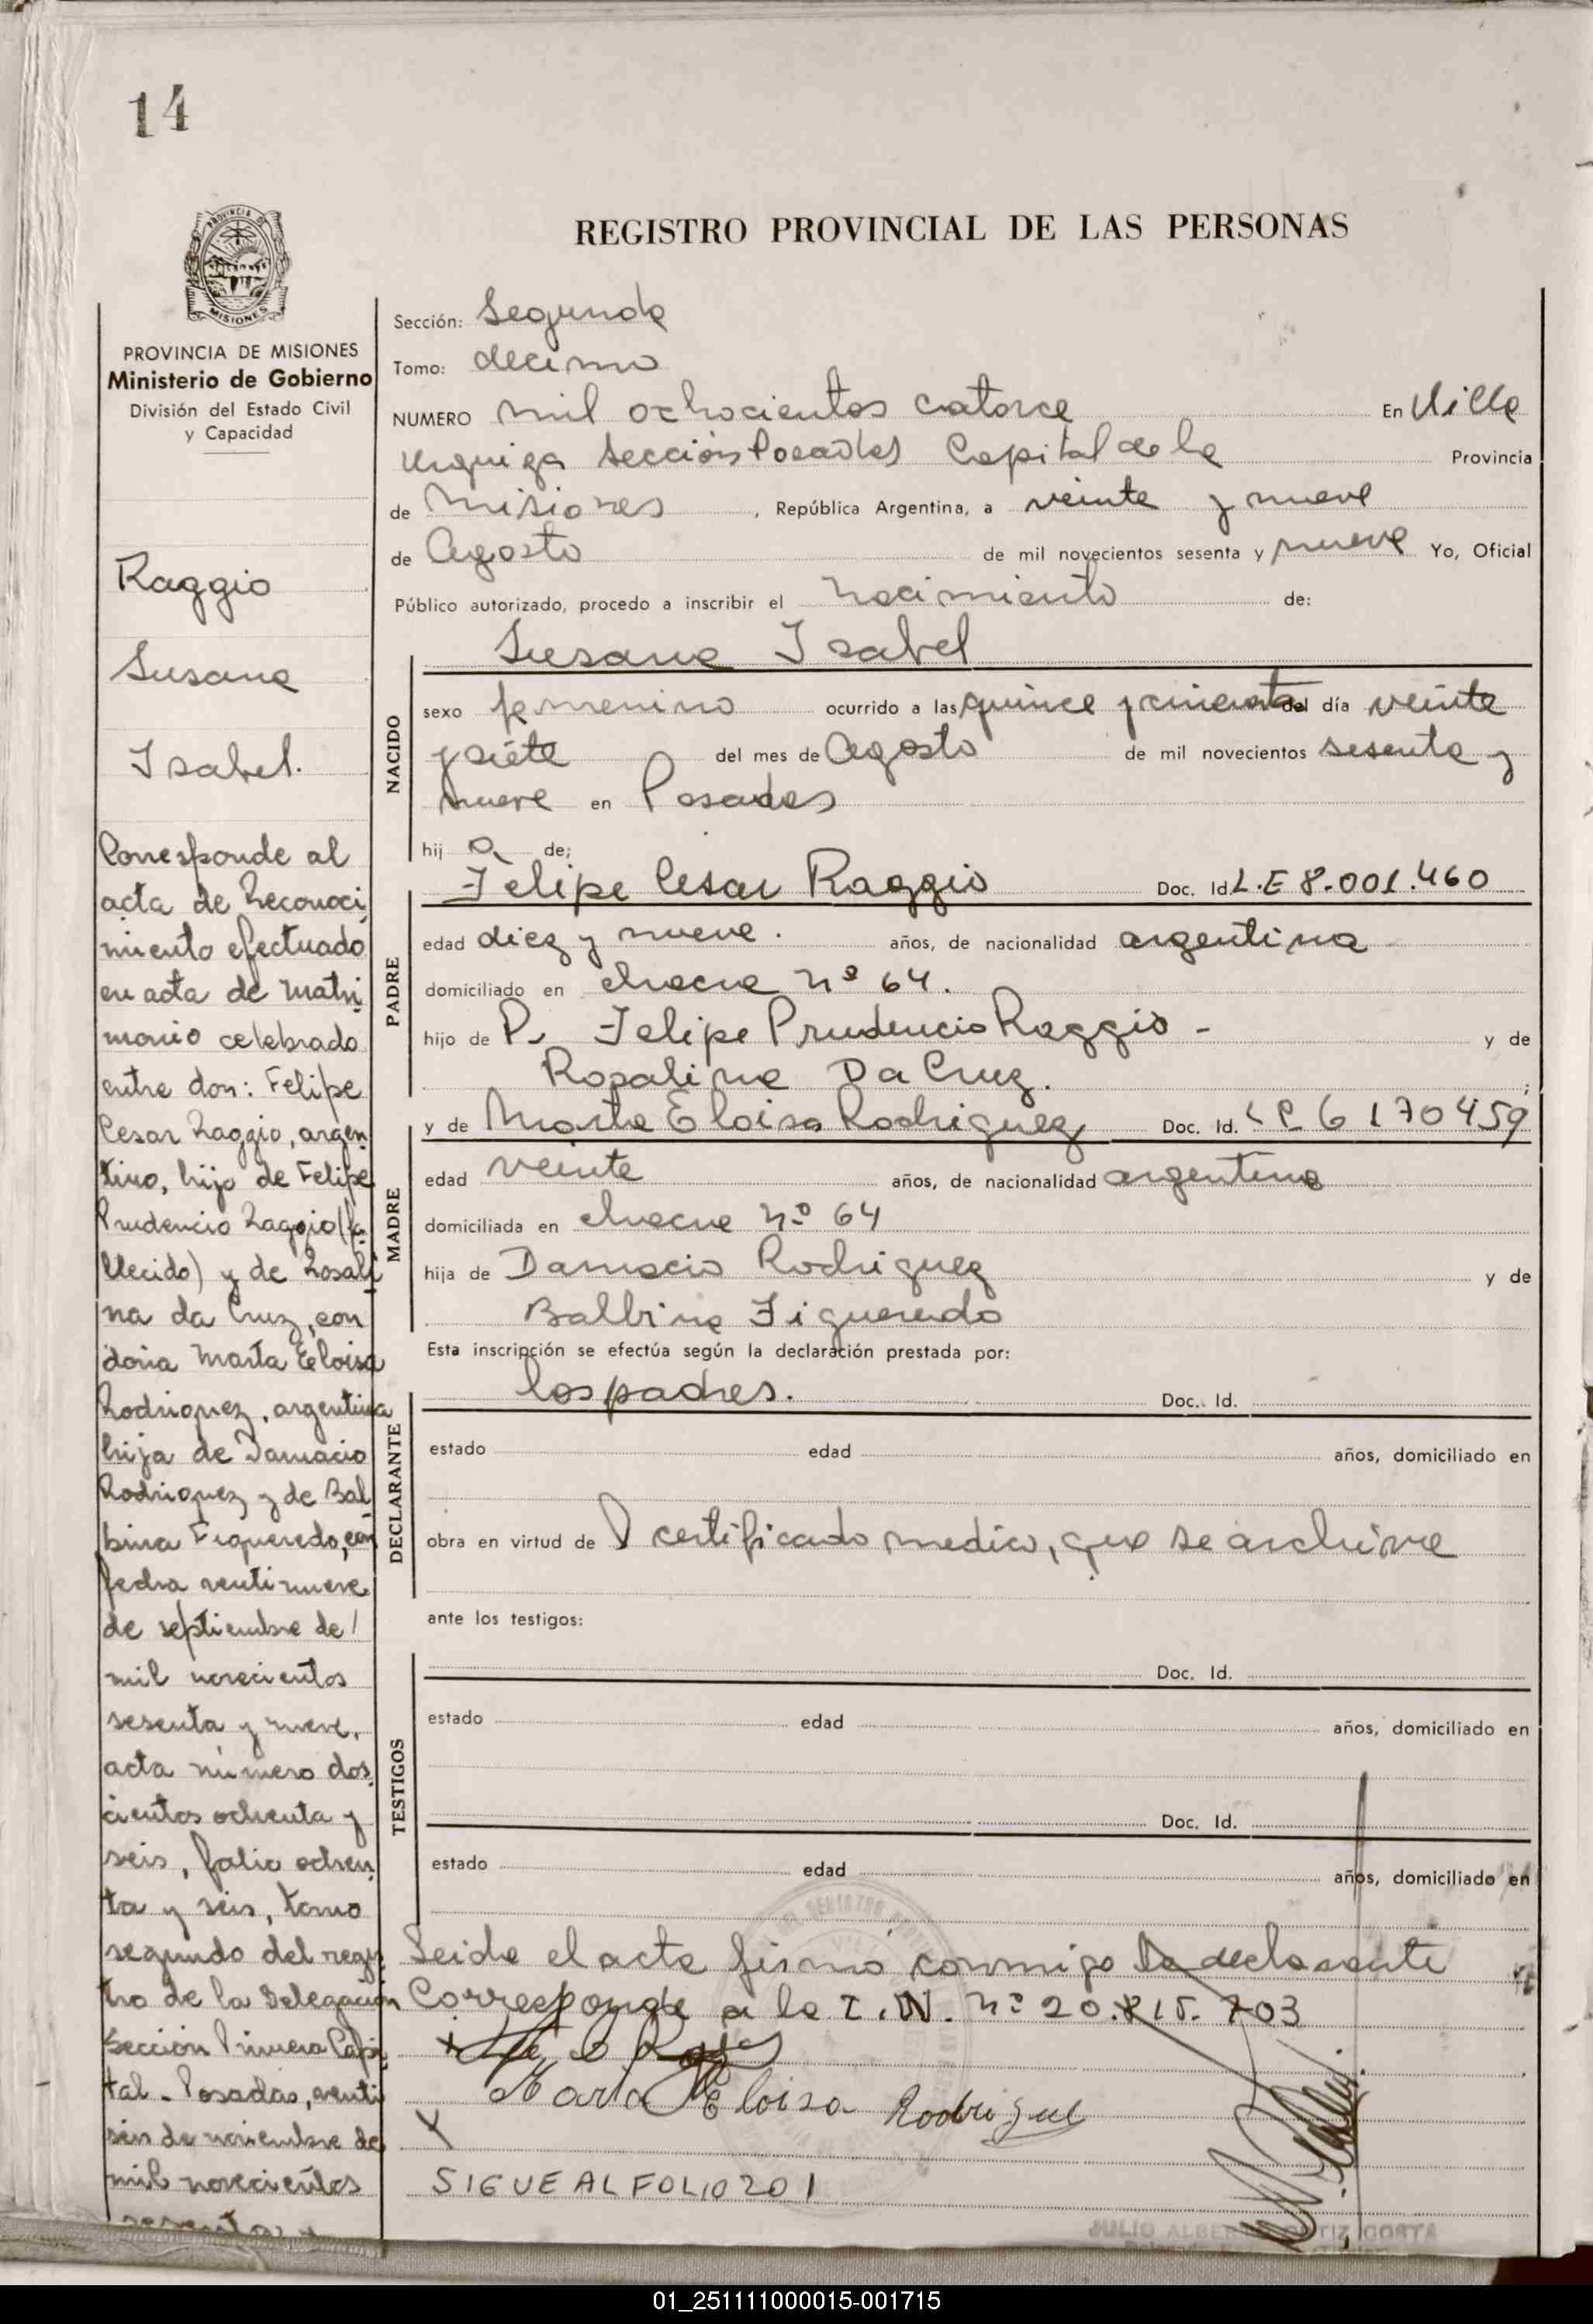 14
PROVINCIA DE
MISIONES
PROVINCIA DE MISIONES
Ministerio de Gobierno
División del Estado Civil
y Capacidad
Raggio
Susana
Isabel.
Corresponde al
acta de Reconoci
miento efectuado
en acta de matri
monio celebrado
entre don: Felipe
Cesar Raggio, argen
tino, hijo de Felipe
Prudencio Raggio (fa
llecido) y de Rosali
na da Cruz, con
doña Marta Eloisa
Rodriguez, argentina
hija de Damacio
Rodriguez y de Bal
bina Figueredo, con
fecha ventinueve
de septiembre de/
mil novecientos
sesenta y nueve,
acta número dos
cientos ochenta y
seis, folio ochen
ta y seis, tomo
segundo del regis
tro de la Delegación
Sección Primera Capi
tal - Posadas, venti
séis de noviembre de
mil novecientos
sesenta y
REGISTRO PROVINCIAL DE LAS PERSONAS
Sección: Segunda
Tomo: decimo
NUMERO mil ochocientos catorce En Villa
Urquiza Sección Posadas Capital de la Provincia
de Misiones, República Argentina, a veinte y nueve
de Agosto de mil novecientos sesenta y nueve Yo, Oficial
Público autorizado, procedo a inscribir el nacimiento de:
Susana Isabel
NACIDO
sexo femenino ocurrido a las quince y cincuenta del día veinte
y siete del mes de Agosto de mil novecientos sesenta y
nueve en Posadas
hij a de;
Felipe Cesar Raggio Doc. Id L.E 8.001.460
PADRE
edad diez y nueve. años, de nacionalidad argentina
domiciliado en chacra nº 64.
hijo de Felipe Prudencio Raggio - y de
Rosalina Da Cruz. ;
y de Marta Eloisa Rodriguez Doc. Id. LC 6170459
MADRE
edad veinte años, de nacionalidad argentina
domiciliada en chacra nº 64
hija de Damacio Rodriguez y de
Balbina Figueredo
Esta inscripción se efectúa según la declaración prestada por:
los padres. Doc. Id.
DECLARANTE
estado edad años, domiciliado en
obra en virtud de certificado medico, que se archiva
ante los testigos:
Doc. Id.
TESTIGOS
estado edad años, domiciliado en
Doc. Id.
estado edad años, domiciliado en
Leida el acta firmó conmigo la declarante
Corresponde a la I.N. nº 20.815.703
Marta Eloisa Rodriguez
SIGUE AL FOLIO 201
JULIO ALBERTO ORTIZ
01_251111000015-001715